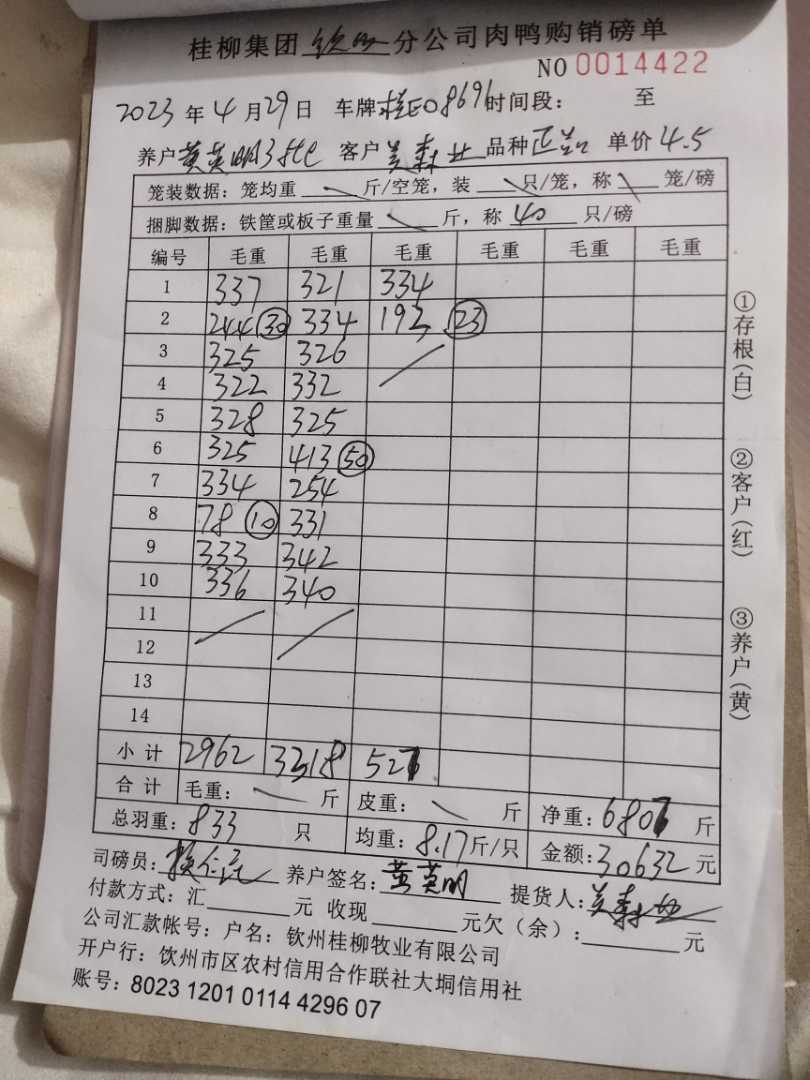 桂柳集团 钦州 分公司肉鸭购销磅单
NO 0014422
2023 年 4 月 29 日 车牌 桂E08691 时间段： 至
养户 黄英明 客户 品种 正 单价 4.5
笼装数据：笼均重 斤/空笼，装 只/笼，称 笼/磅
捆脚数据：铁筐或板子重量 斤，称 40 只/磅
编号 毛重 毛重 毛重 毛重 毛重 毛重
1 337 321 334
2 244 (30) 334 193 (23)
3 325 326
4 322 332
5 328 325
6 325 413 (50)
7 334 254
8 78 (10) 331
9 333 342
10 336 340
11
12
13
14
小计 2962 3318 527
合计 毛重： 斤 皮重： 斤 净重：6807 斤
总羽重：833 只 均重：8.17 斤/只 金额：30632 元
司磅员： 养户签名：黄英明 提货人：
付款方式：汇 元 收现 元欠（余）： 元
公司汇款帐号：户名：钦州桂柳牧业有限公司
开户行：饮州市区农村信用合作联社大垌信用社
账号：8023 1201 0114 4296 07
①存根(白)
②客户(红)
③养户(黄)